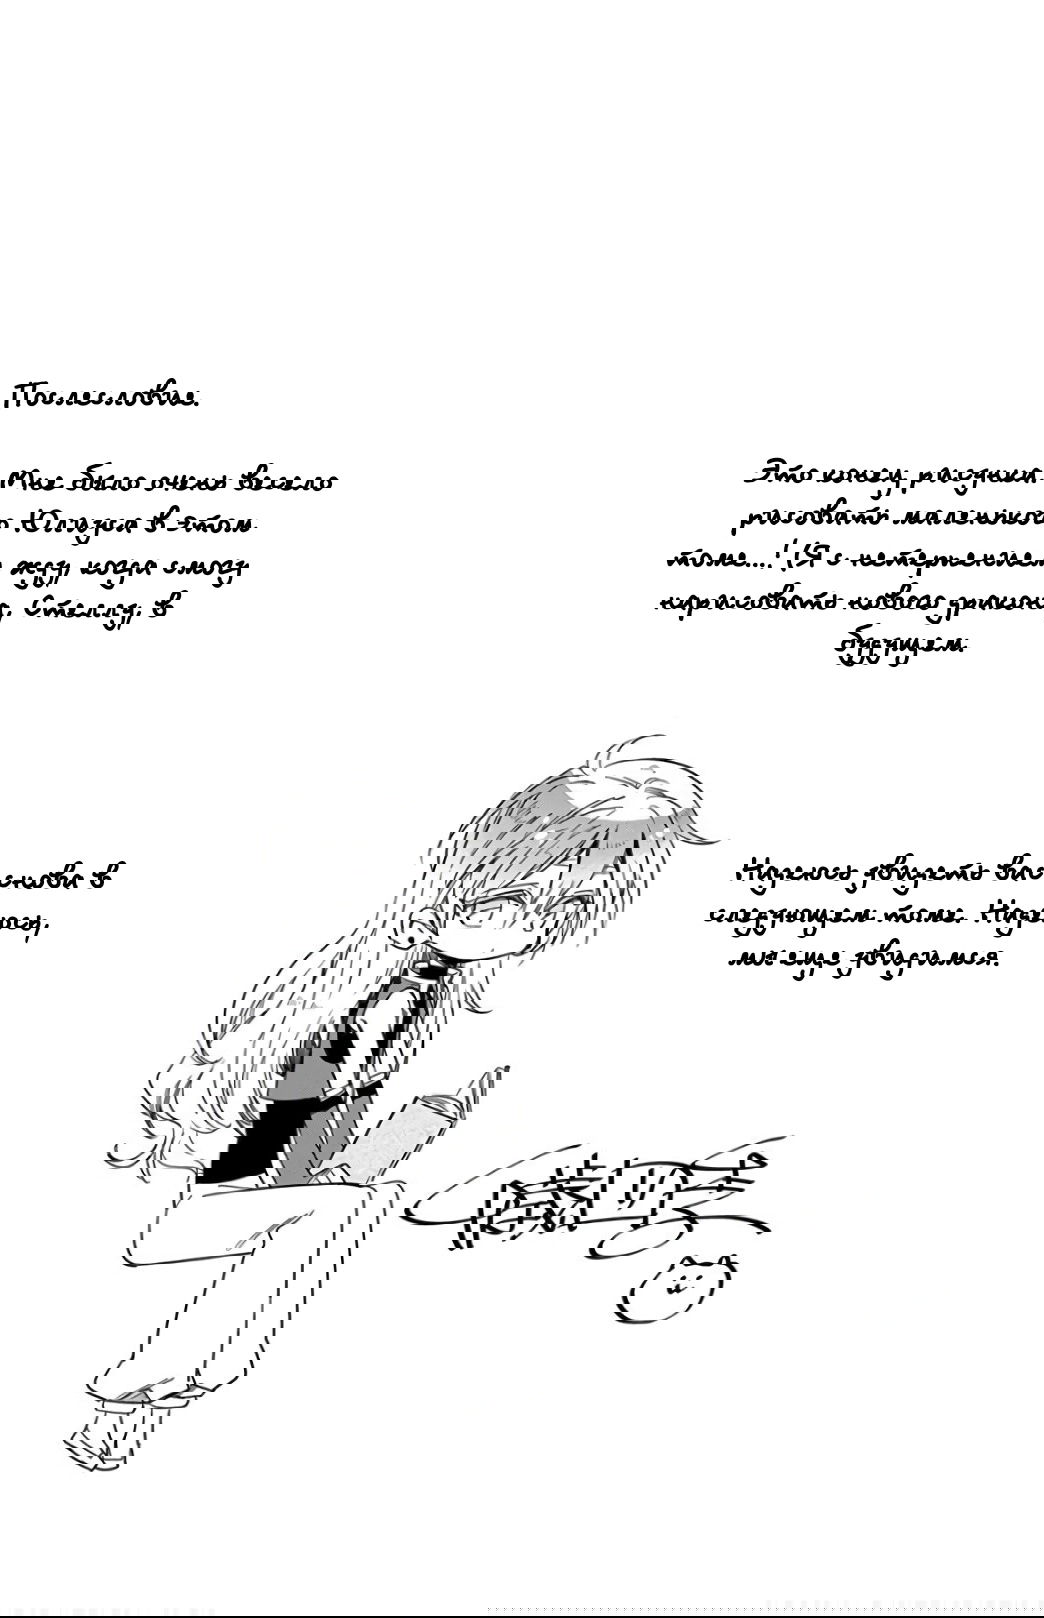 Послесловие.
Мне было очень весело
о Юлиуса в этом
жду когда смогу
Стеллу, в
Это конец рисунка
рисовать маленько
томе...! (Я с нетерпением
нарисовать нового дракон
будущем.
снова в
юсь,
Надеюсь увидеть вас
следующем томе. Наде
мы еще увидимся.